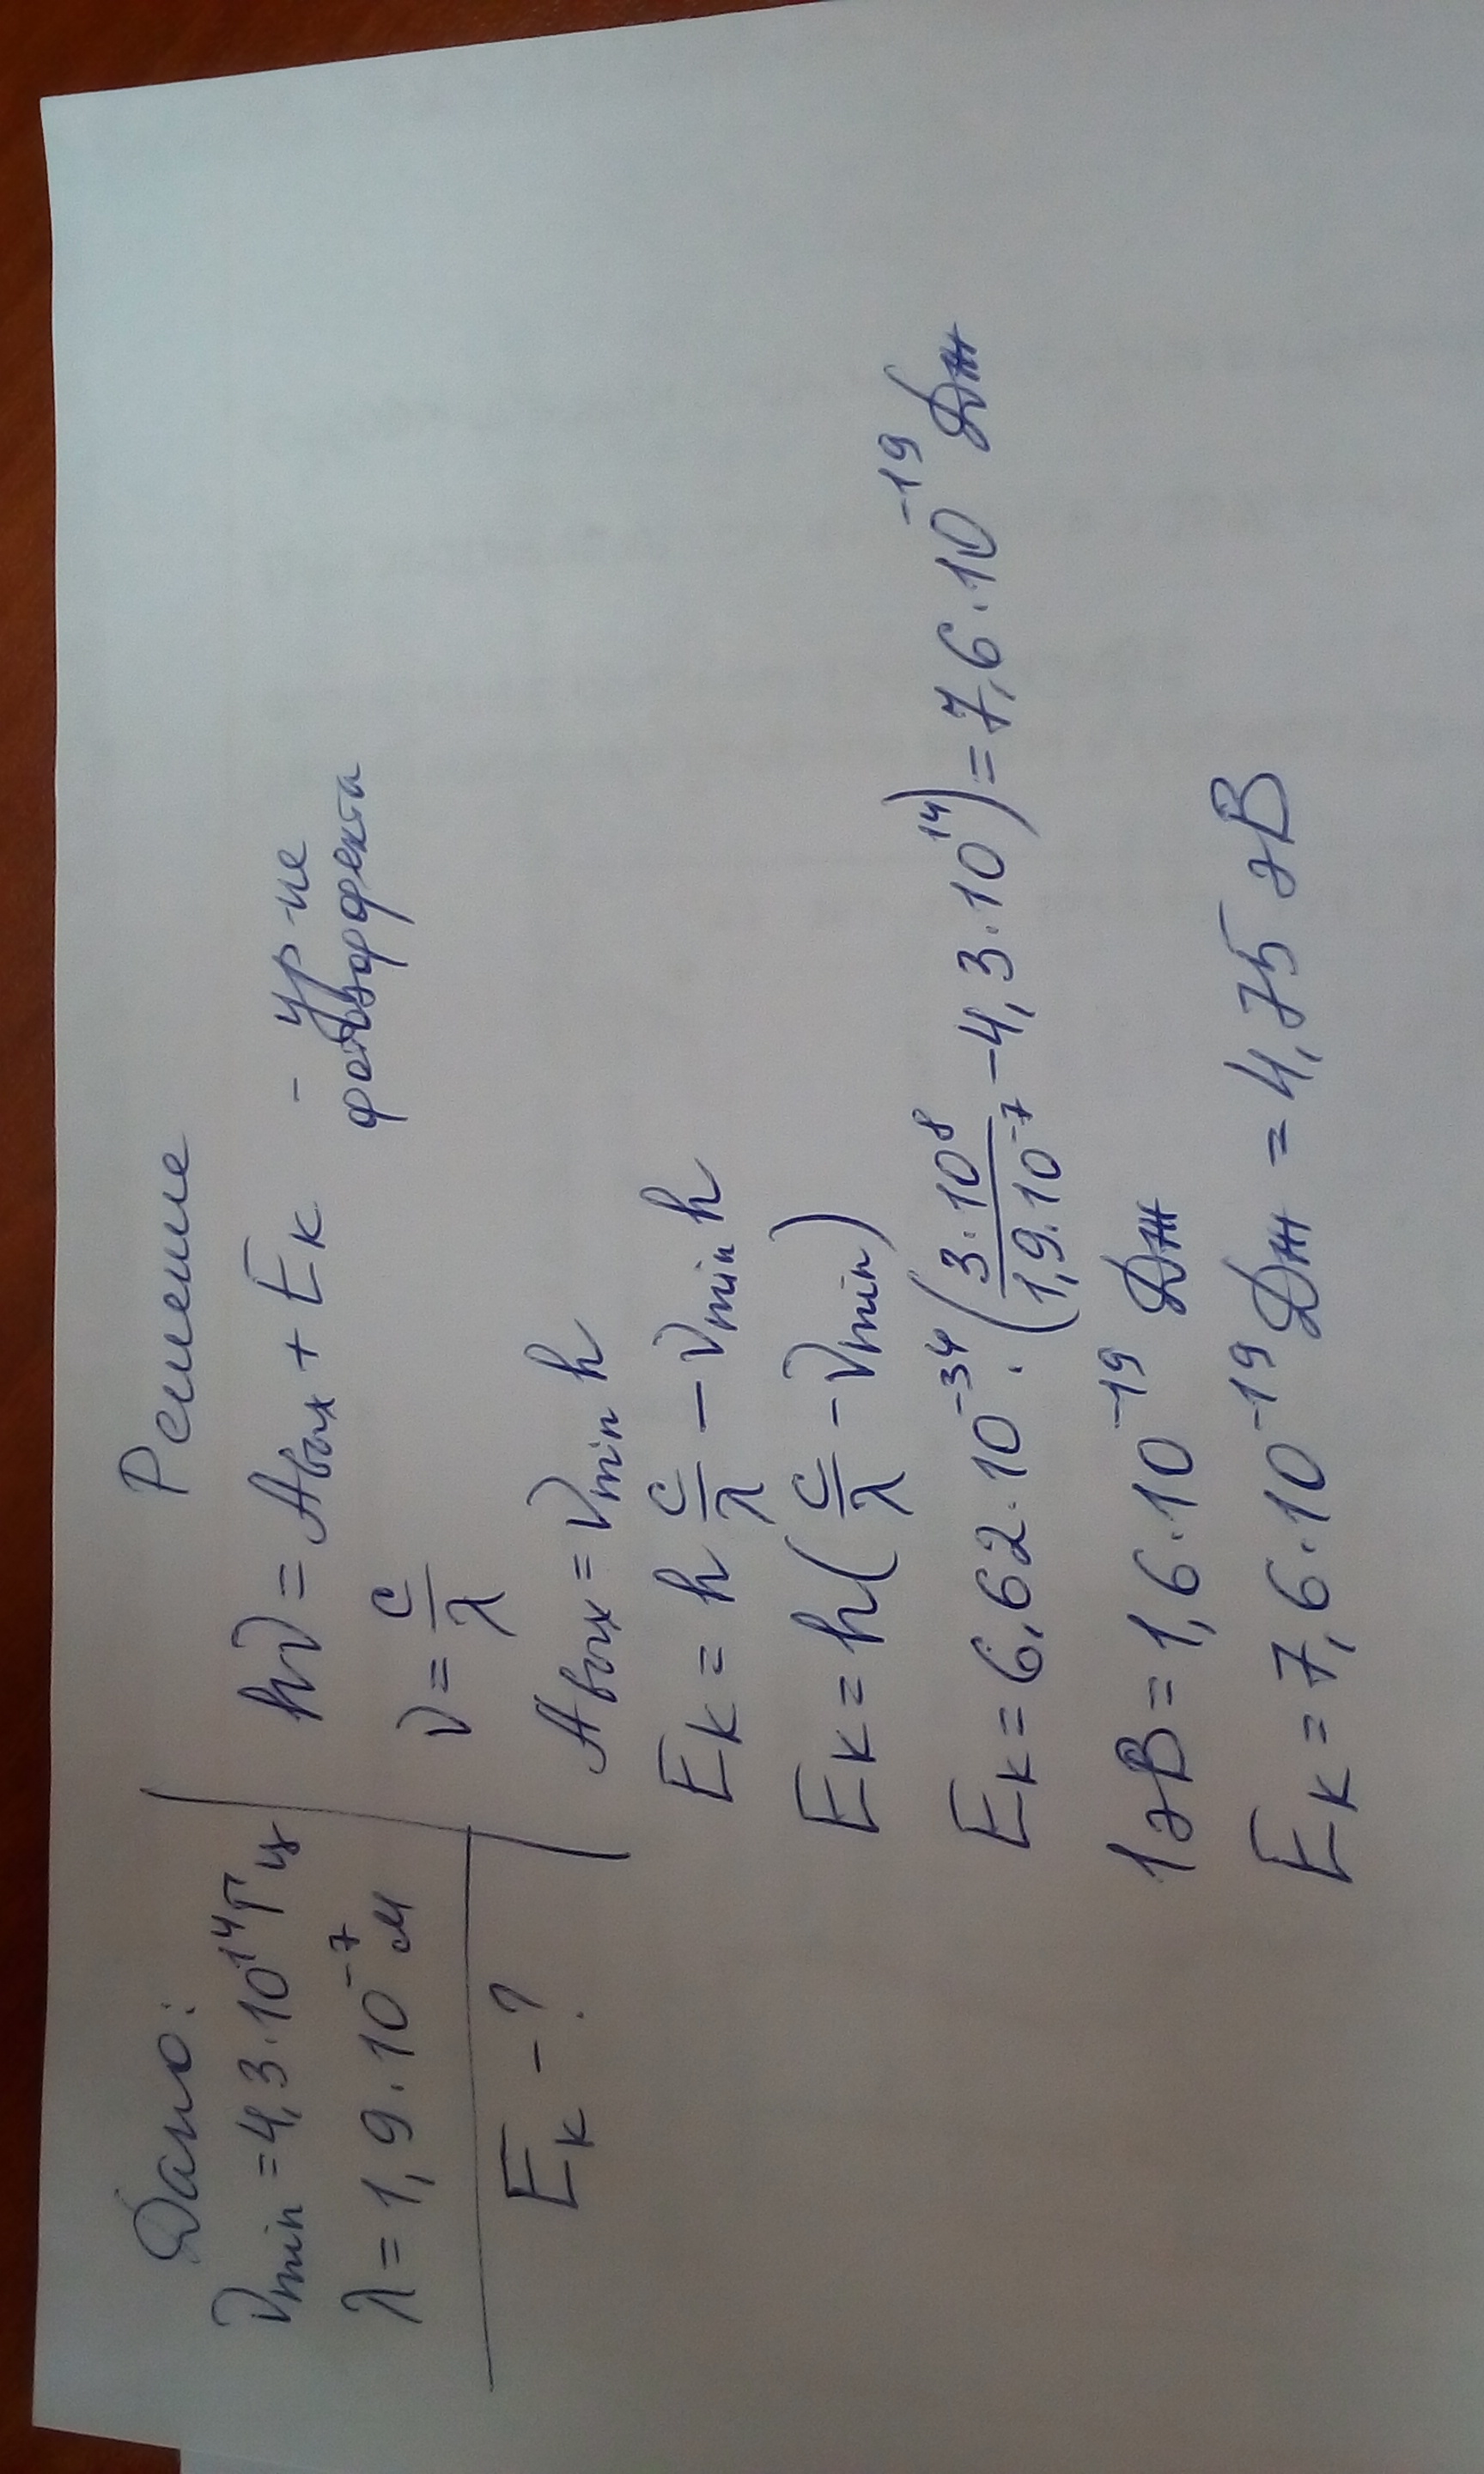 Дано:
ν_min = 4,3·10¹⁴ Гц
λ = 1,9·10⁻⁷ м
E_к - ?
Решение
hν = A_вых + E_к - ур-ие
фотоэффекта
ν = c/λ
A_вых = ν_min h
E_к = h c/λ - ν_min h
E_к = h(c/λ - ν_min)
E_к = 6,62·10⁻³⁴·(3·10⁸/1,9·10⁻⁷ - 4,3·10¹⁴) = 7,6·10⁻¹⁹ Дж
1эВ = 1,6·10⁻¹⁹ Дж
E_к = 7,6·10⁻¹⁹ Дж = 4,75 эВ